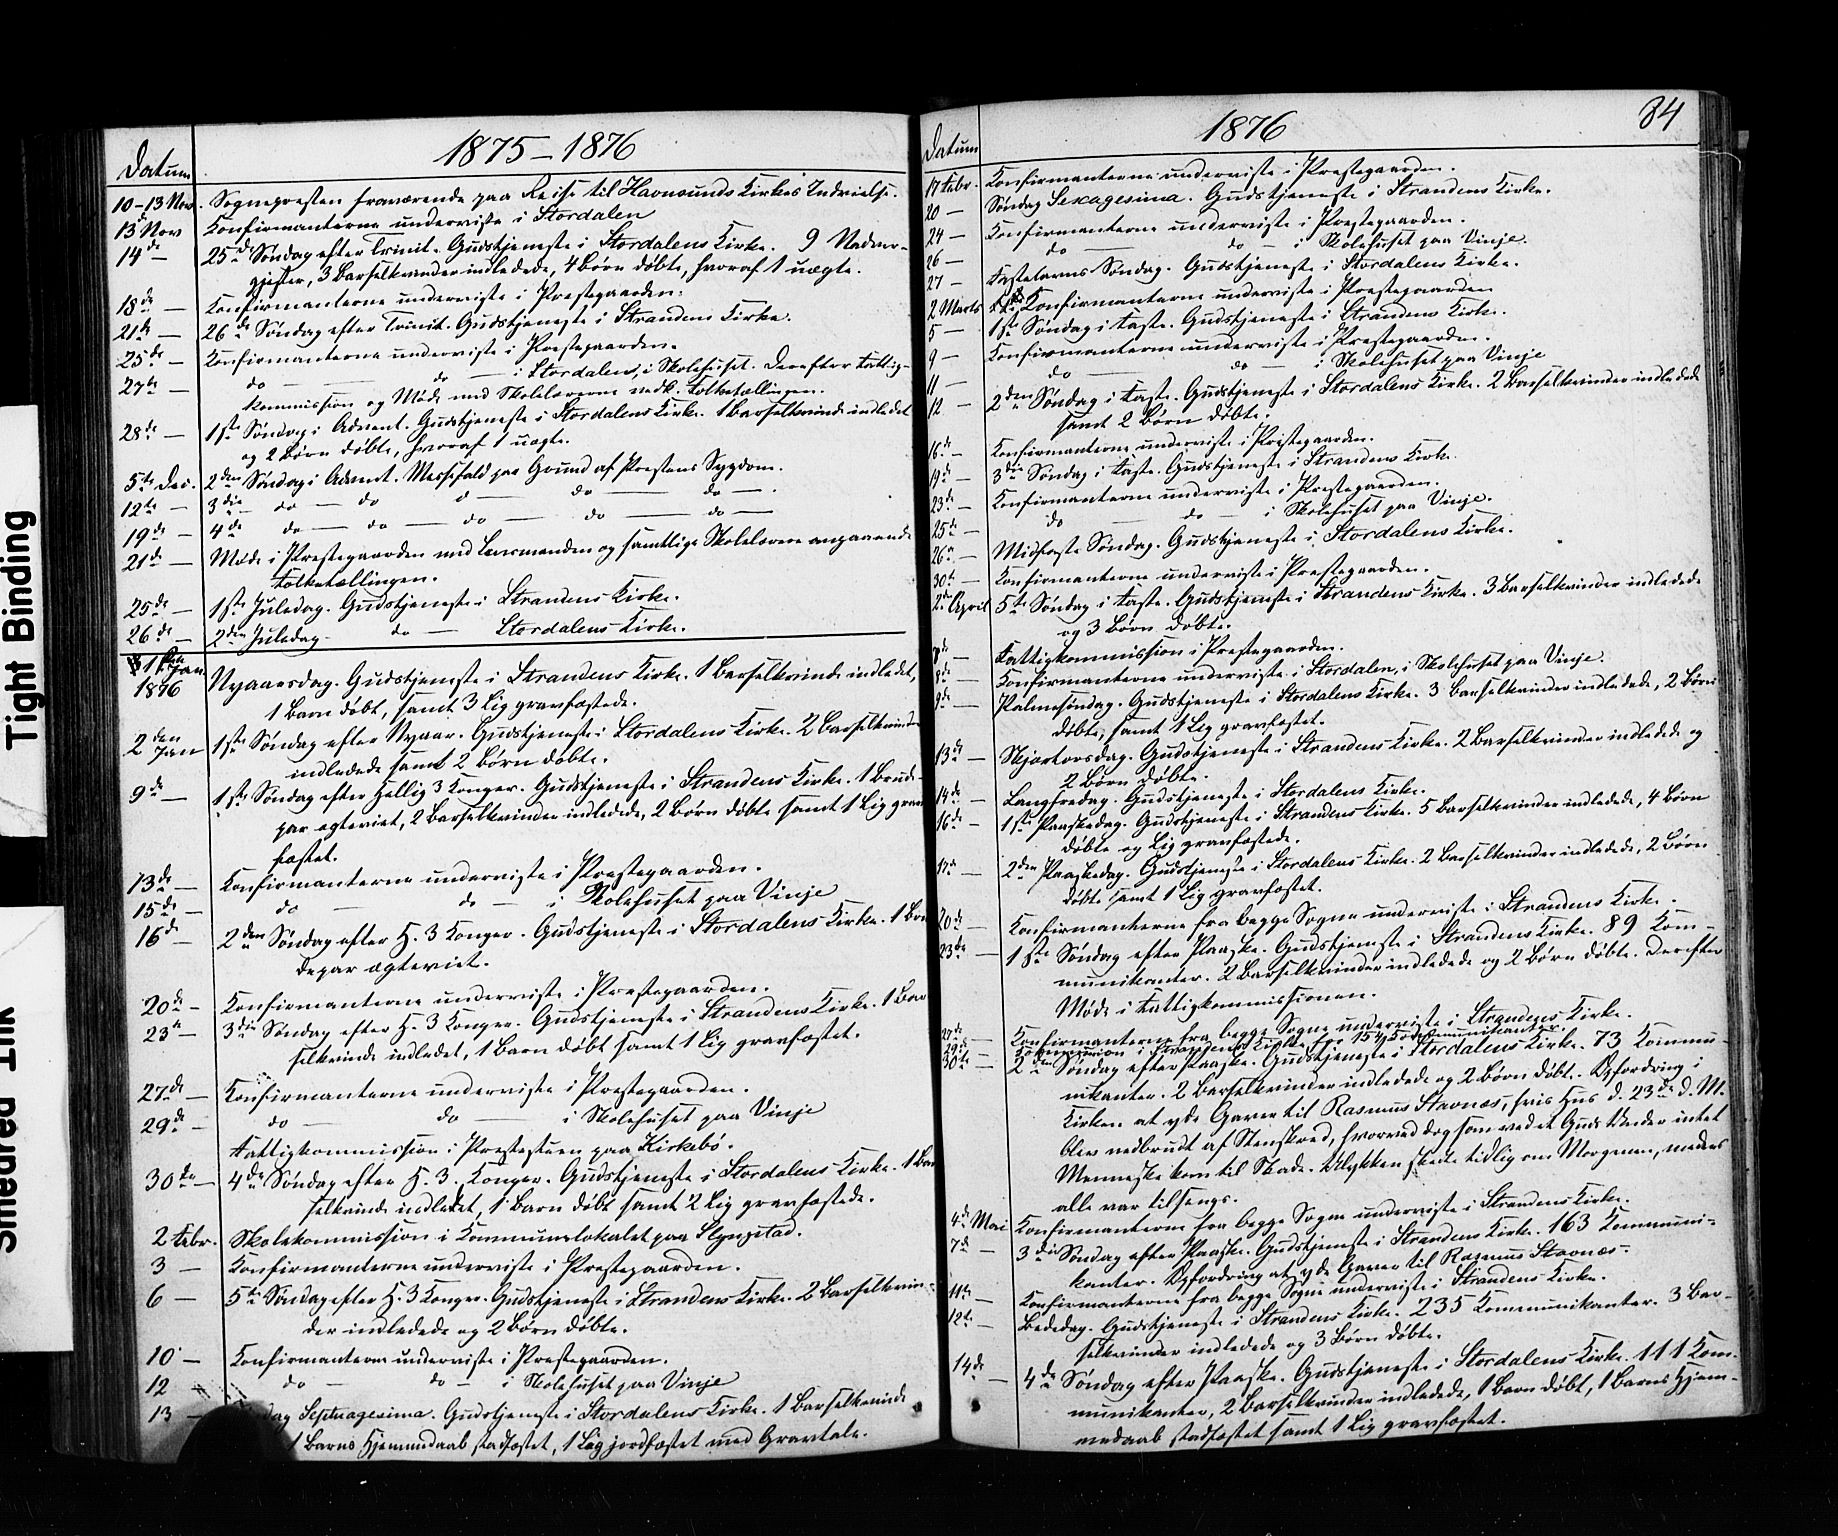 Tight Binding
Smeared Ink
1875-1876
Datum
10-13 Nov. Sognepresten fraværende paa Reise til Havnsunds Kirkes Indvielse.
13de Nov Konfirmanterne underviste i Stordalen
14de — 25de Søndag efter Trinit. Gudstjeneste i Stordalens Kirke. 9 Nadver-
gjester, 3 Barselkvinder indledede, 4 Børn døbte, hvoraf 1 uægte.
18de — Konfirmanterne underviste i Prestegaarden.
21de — 26de Søndag efter Trinit. Gudstjeneste i Strandens Kirke.
25de — Konfirmanterne underviste i Prestegaarden.
27de — do — do — i Stordalen, i Skolehuset. Derefter Fattig-
kommission og Møde med Skolelærerne vedk. Folketællingen.
28de — 1ste Søndag i Advent. Gudstjeneste i Stordalens Kirke. 1 Barselkvinde indledet
og 2 Børn døbte, hvoraf 1 uægte.
5te Dec. 2den Søndag i Advent. Messefald paa Grund af Prestens Sygdom.
12te — 3die — do — do d — do — do — .
19de — 4de do — do — do — do — do —
21de — Møde i Prestegaarden med Lensmanden og samtlige Skolelærere angaaende
Folketællingen.
25de — 1ste Juledag. Gudstjeneste i Strandens Kirke.
26de — 2den Juledag. do — Stordalens Kirke.
1ste Jan.
1876 Nyaarsdag. Gudstjeneste i Strandens Kirke. 1 Barselkvinde indledet,
1 Barn døbt, samt 3 Lig gravfæstede.
2den Jan 1ste Søndag efter Nyaar. Gudstjeneste i Stordalens Kirke. 2 Barselkvinder
indledede samt 2 Børn døbte.
9de — 1ste Søndag efter Hellig 3 Konger. Gudstjeneste i Strandens Kirke. 1 Brude-
par ægteviet, 2 Barselkvinder indledede, 2 Børn døbte samt 1 Lig grav
fæstet.
13de — Konfirmanterne underviste i Prestegaarden.
15de — do — do — i Skolehuset paa Vinje
16de — 2den Søndag efter H. 3 Konger. Gudstjeneste i Stordalens Kirke. 1 Bru
depar ægteviet.
20de — Konfirmanterne underviste i Prestegaarden.
23de — 3die Søndag efter H. 3 Konger. Gudstjeneste i Strandens Kirke. 1 Bar
selkvinde indledet, 1 Barn døbt samt 1 Lig gravfæstet.
27de — Konfirmanterne underviste i Prestegaarden.
29de — do — do — i Skolehuset paa Vinje
Fattigkommission i Prestestuen paa Kirkebø.
30de — 4de Søndag efter H. 3. Konger. Gudstjeneste i Stordalens Kirke. 1 Bar
selkvinde indledet, 1 Barn døbt samt 2 Lig gravfæstede.
2 Febr. Skolekommission i Kommunelokalet paa Slyngstad.
3 — Konfirmanterne underviste i Prestegaarden.
6 — 5te Søndag efter H. 3 Konger. Gudstjeneste i Strandens Kirke. 2 Barselkvin-
der indledede og 2 Børn døbte.
10 — Konfirmanterne underviste i Prestegaarden.
12 do — do — i Skolehuset paa Vinje
13 — dag Septuagesima. Gudstjeneste i Stordalens Kirke. 1 Barselkvinde
1 Barns Hjemmedaab stadfæstet, 1 Lig jordfæstet med Gravtale.
1876
34
Datum
17 Febr. Konfirmanterne underviste i Prestegaarden.
20 — Søndag Sexagesima. Gudstjeneste i Strandens Kirke.
24 — Konfirmanterne underviste i Prestegaarden.
26 — do — do — i Skolehuset paa Vinje.
27 — Fastelavns Søndag. Gudstjeneste i Stordalens Kirke.
2 Marts Konfirmanterne underviste i Prestegaarden
5 — 1ste Søndag i Faste. Gudstjeneste i Strandens Kirke.
9 — Konfirmanterne underviste i Prestegaarden.
11 — do — do — i Skolehuset paa Vinje
12 — 2den Søndag i Faste. Gudstjeneste i Stordalens Kirke. 2 Barselkvinder indledede
samt 2 Børn døbte.
16de — Konfirmanterne underviste i Prestegaarden.
19de — 3die Søndag i Faste. Gudstjeneste i Strandens Kirke.
23de — Konfirmanterne underviste i Prestegaarden.
25de — do — do — i Skolehuset paa Vinje.
26de — Midfaste Søndag. Gudstjeneste i Stordalens Kirke.
30te — Konfirmanterne underviste i Prestegaarden.
2de April 5te Søndag i Faste. Gudstjeneste i Strandens Kirke. 3 Barselkvinder indledede
og 3 Børn døbte.
7de — Fattigkommission i Prestegaarden.
8de — Konfirmanterne underviste i Stordalen, i Skolehuset paa Vinje.
9de — Palmesøndag. Gudstjeneste i Stordalens Kirke. 3 Barselkvinder indledede, 2 Børn
døbte, samt 1 Lig gravfæstet.
13de — Skjærtorsdag. Gudstjeneste i Strandens Kirke. 2 Barselkvinder indledede og
2 Børn døbte.
14de — Langfredag. Gudstjeneste i Stordalens Kirke.
16de — 1ste Paaskedag. Gudstjeneste i Strandens Kirke. 5 Barselkvinder indledede, 4 Børn
døbte og Lig gravfæstede.
17de — 2den Paaskedag. Gudstjeneste i Stordalens Kirke. 2 Barselkvinder indledede, 2 Børn
døbte samt 1 Lig gravfæstet.
20de — Konfirmanterne fra begge Sogne underviste i Strandens Kirke.
23de — 1ste Søndag efter Paaske. Gudstjeneste i Strandens Kirke. 89 Kom-
munikanter. 2 Barselkvinder indledede og 2 Børn døbte. Derefter
Møde i Fattigkommissionen.
27de — Konfirmanterne fra begge Sogne underviste i Strandens Kirke.
29de — Kommunion i Strandens Kirke for Kommunikanter.
30te — 2den Søndag efter Paaske. Gudstjeneste i Stordalens Kirke. 73 Kommu-
nikanter. 2 Barselkvinder indledede og 2 Børn døbt. Opfordring i
Kirken at yde Gaver til Rasmus Stavnæs, hvis Hus d. 23de d. M.
blev nedbrudt af Stenskred, hvorved dog som ved et Guds Under intet
Menneske kom til Skade. Ulykken skede tidlig om Morgenen, medens
alle var tilsengs.
4de Mai Konfirmanterne fra begge Sogne underviste i Strandens Kirke.
7de — 3die Søndag efter Paaske. Gudstjeneste i Strandens Kirke. 163 Kommuni-
kanter. Opfordring at yde Gaver til Rasmus Stavnæs.
11te — Konfirmanterne fra begge Sogne underviste i Strandens Kirke.
12te — Bededag. Gudstjeneste i Strandens Kirke. 235 Kommunikanter. 3 Bar-
selkvinder indledede og 3 Børn døbte.
14de — 4de Søndag efter Paaske. Gudstjeneste i Stordalens Kirke. 111 Kom-
munikanter, 2 Barselkvinder indledede, 1 Barn døbt, 1 Barns Hjem-
medaab stadfæstet samt 1 Lig gravfæstet.